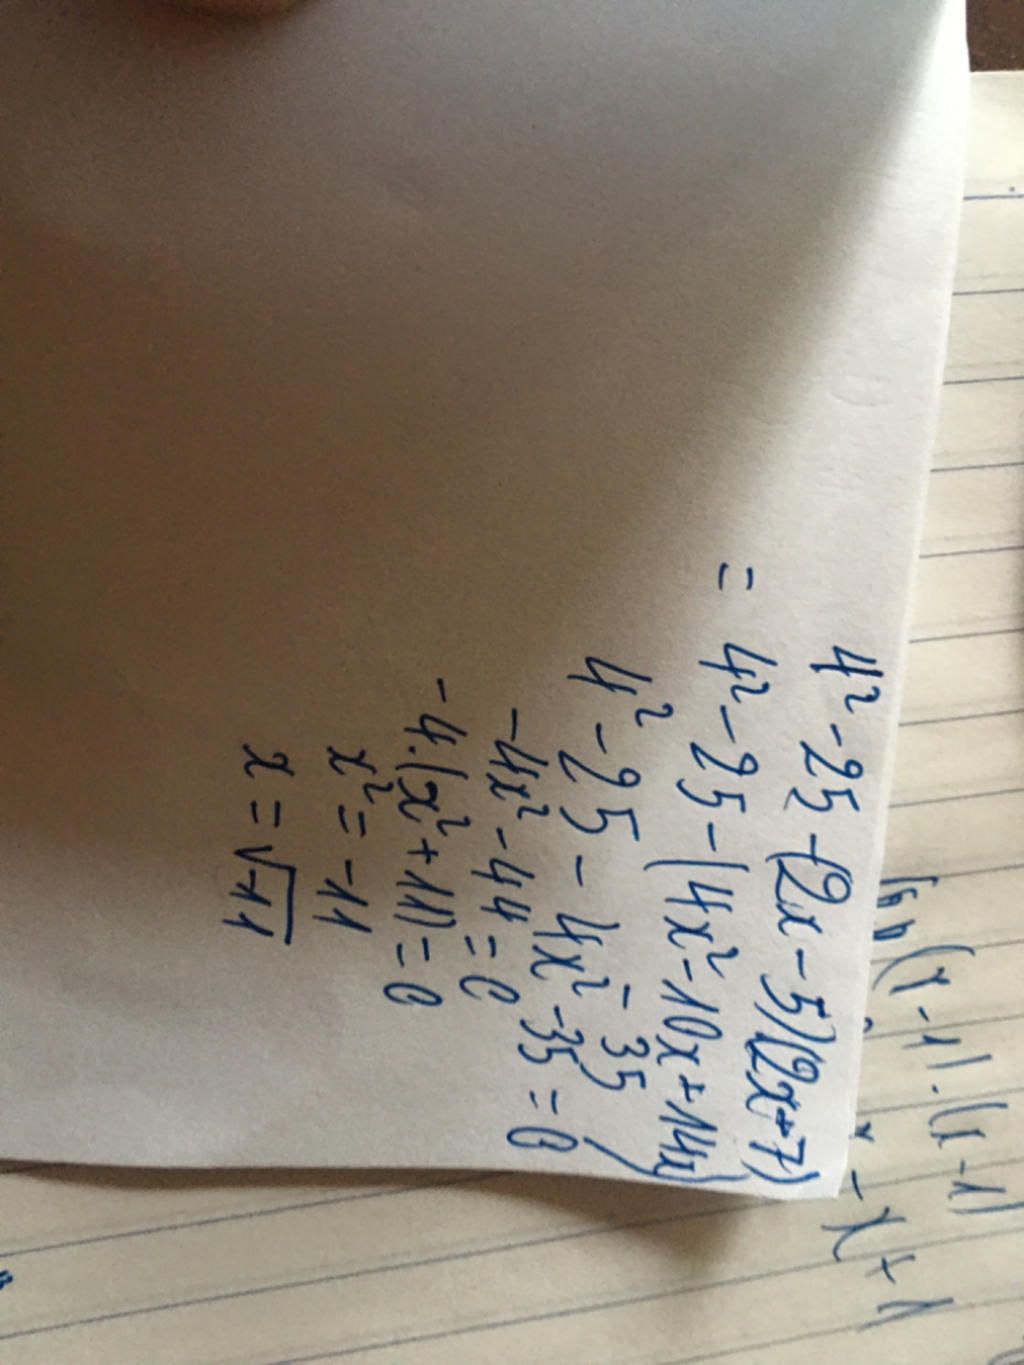 4² - 25 - (2x - 5)(2x + 7)
= 4² - 25 - (4x² - 10x + 14x
- 35)
4² - 25 - 4x² - 35 = 0
-4x² - 44 = 0
-4.(x² + 11) = 0
x² = -11
x = √-11
(x - 1).(x - 1)
- x + 1